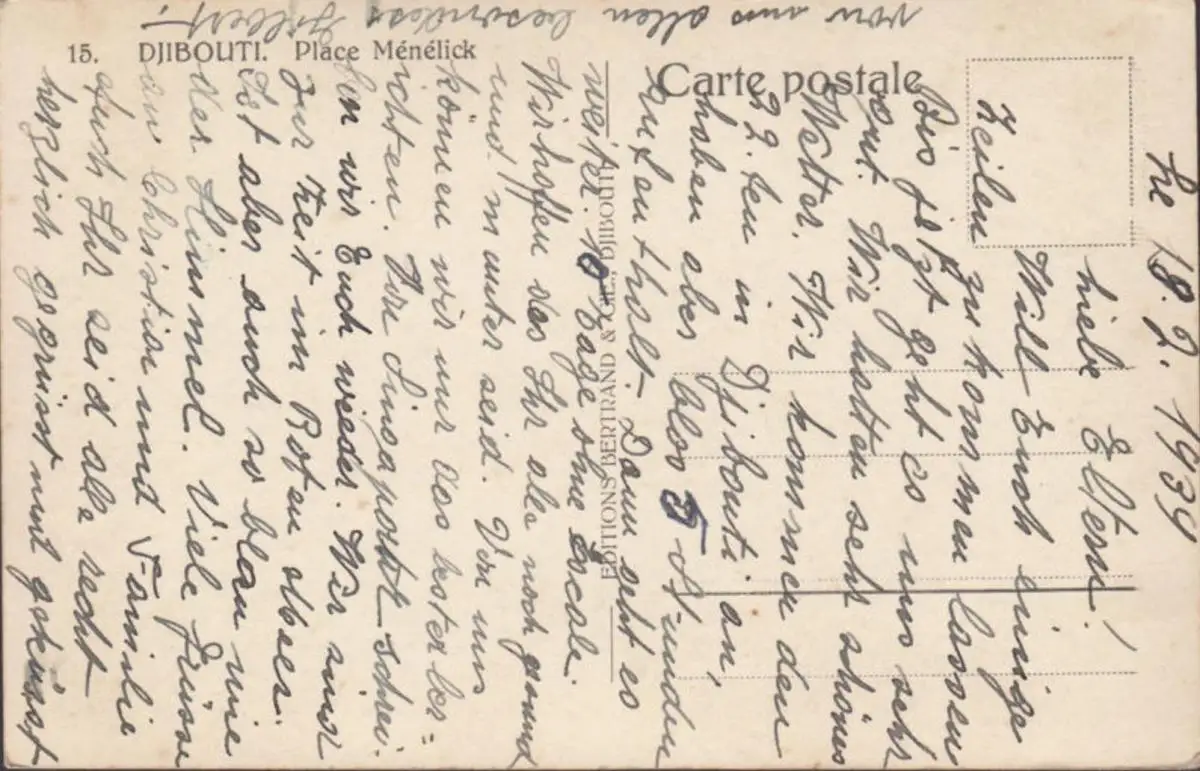 15. DJIBOUTI. Place Ménélick
Carte postale
EDITIONS BERTRAND & DJIBOUTI
18. 2. 1939
Liebe Eltern!
Will Euch einige
Zeilen zu kommen lassen
Bis jetzt geht es uns sehr
gut. Wir hatten sehr schönes
Wetter. Wir kommen den
22. ten in Djibouti an,
haben aber blos 5 Stunden
Aufenthalt. Dann geht es
weiter 10 Tage ohne Escale.
Wir hoffen das Ihr alle noch gesund
und munter seid. Von uns
können wir nur das beste ber=
ichten. Von Singaporte schrei-
ben wir Euch wieder. Wir sind
zur Zeit im Roten Meer.
Ist aber auch so blau wie
der Himmel. Viele Grüsse
an Christian und Familie
Auch Ihr seid alle recht
herzlich gegrüst und geküsst
von uns allen besonders Gilbert.